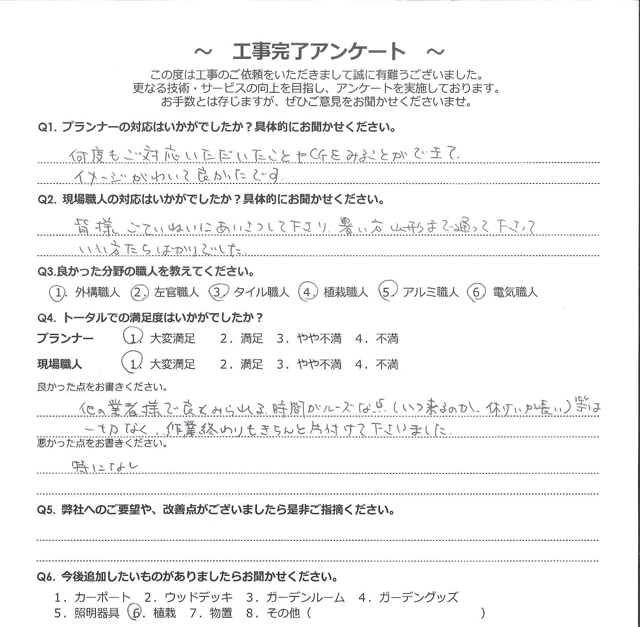 ～ 工事完了アンケート ～
この度は工事のご依頼をいただきまして誠に有難うございました。
更なる技術・サービスの向上を目指し、アンケートを実施しております。
お手数とは存じますが、ぜひご意見をお聞かせくださいませ。
Q1. プランナーの対応はいかがでしたか？具体的にお聞かせください。
何度もご対応いただいたことやCGをみることができて、
イメージがわいて良かったです
Q2. 現場職人の対応はいかがでしたか？具体的にお聞かせください。
皆様、ごていねいにあいさつして下さり、暑い方山形まで通って下さって
いい方たちばかりでした。
Q3.良かった分野の職人を教えてください。
1. 外構職人 2. 左官職人 3. タイル職人 4. 植栽職人 5. アルミ職人 6. 電気職人
Q4. トータルでの満足度はいかがでしたか？
プランナー 1. 大変満足 2. 満足 3. やや不満 4. 不満
現場職人 1. 大変満足 2. 満足 3. やや不満 4. 不満
良かった点をお書きください。
他の業者様で良くみられる、時間がルーズな点（いつ来るのか、休けいが長い）等は
一切なく、作業終わりもきちんと片付けて下さいました。
悪かった点をお書きください。
特になし
Q5. 弊社へのご要望や、改善点がございましたら是非ご指摘ください。
Q6. 今後追加したいものがありましたらお聞かせください。
1. カーポート 2. ウッドデッキ 3. ガーデンルーム 4. ガーデングッズ
5. 照明器具 6. 植栽 7. 物置 8. その他（ ）